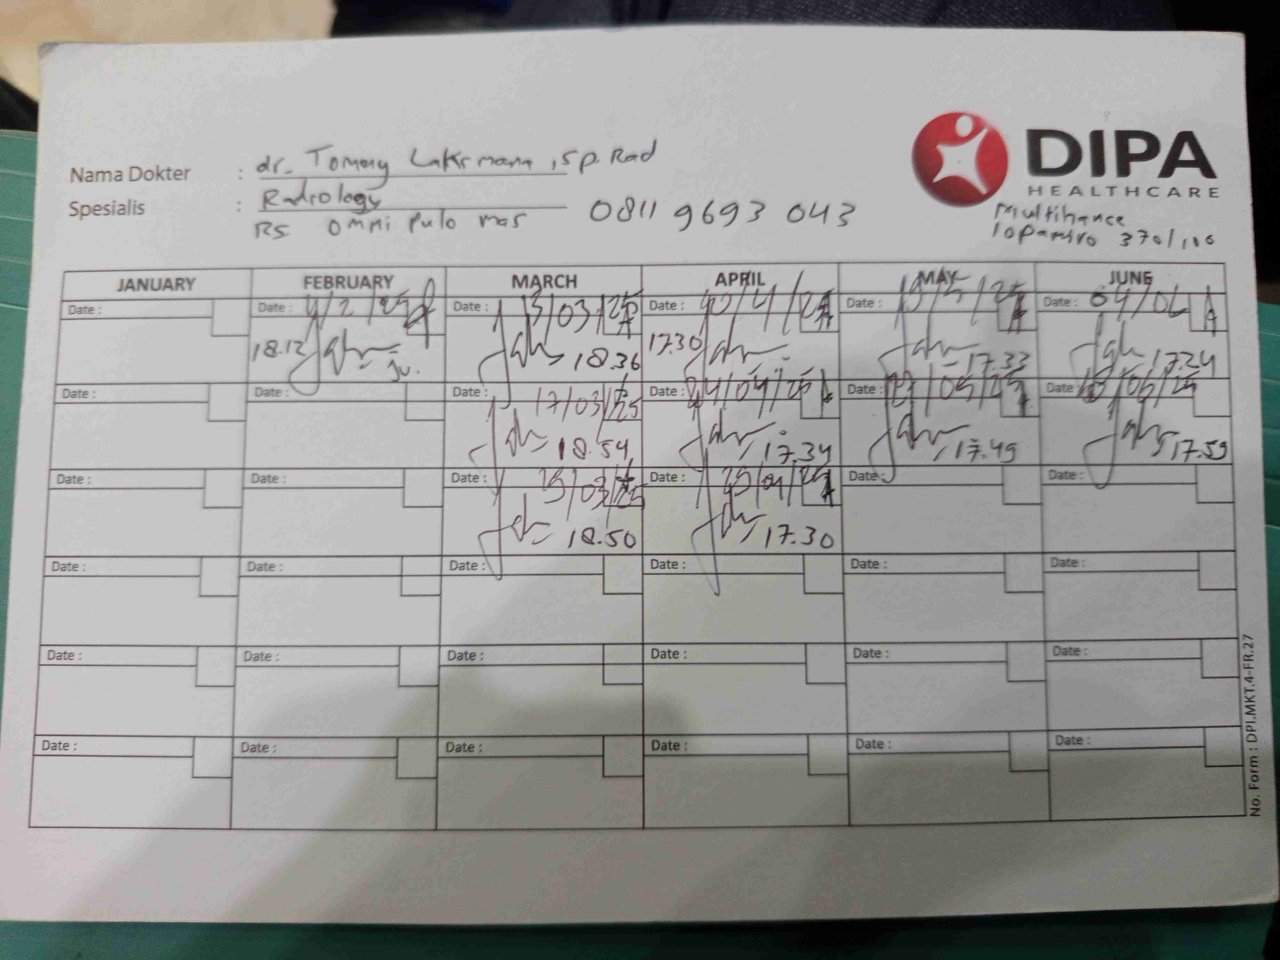 DIPA
HEALTHCARE
Nama Dokter : dr. Tommy Laksmana, Sp. Rad
Spesialis : Radiology
RS Omni Pulo mas 0811 9693 043
Multihance
Iopamiro 370/100
JANUARY FEBRUARY MARCH APRIL MAY JUNE
Date : Date : /2/25 Date : 13/03/25 Date : /4/25 Date : /5/25 Date : 04/06
18.12 18.36 17.30 17.33 17.24
Date : Date : Date : 17/03/25 Date : /04/25 Date : /05/25 Date : /06/25
18.54 17.34 17.49 17.59
Date : Date : Date : /03/25 Date : /04/25 Date : Date :
18.50 17.30
Date : Date : Date : Date : Date : Date :
Date : Date : Date : Date : Date : Date :
Date : Date : Date : Date : Date : Date :
No. Form : DPI.MKT.4-FR.27